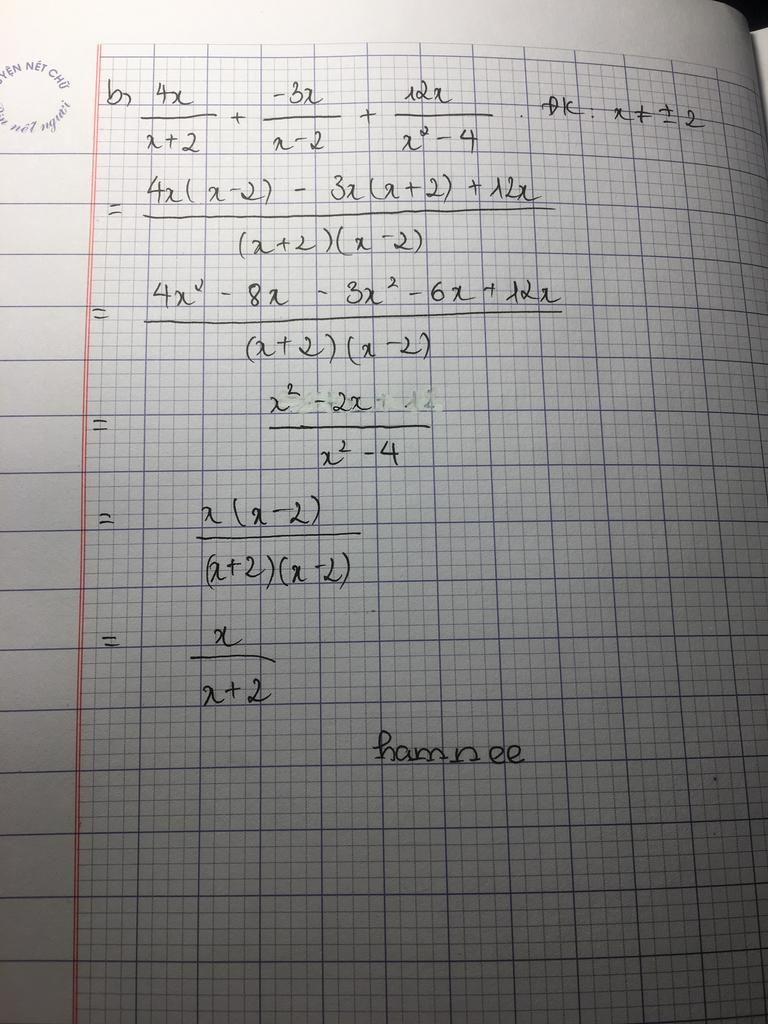 UYỆN NÉT CHỮ
nét người
b, 4x/(x+2) + -3x/(x-2) + 12x/(x² - 4) . ĐK : x ≠ ± 2
= (4x( x-2) - 3x(x+2) + 12x)/((x+2)(x-2))
= (4x² - 8x - 3x² - 6x + 12x)/((x+2)(x-2))
= (x² - 2x)/(x² - 4)
= x(x-2)/((x+2)(x-2))
= x/(x+2)
hamnee